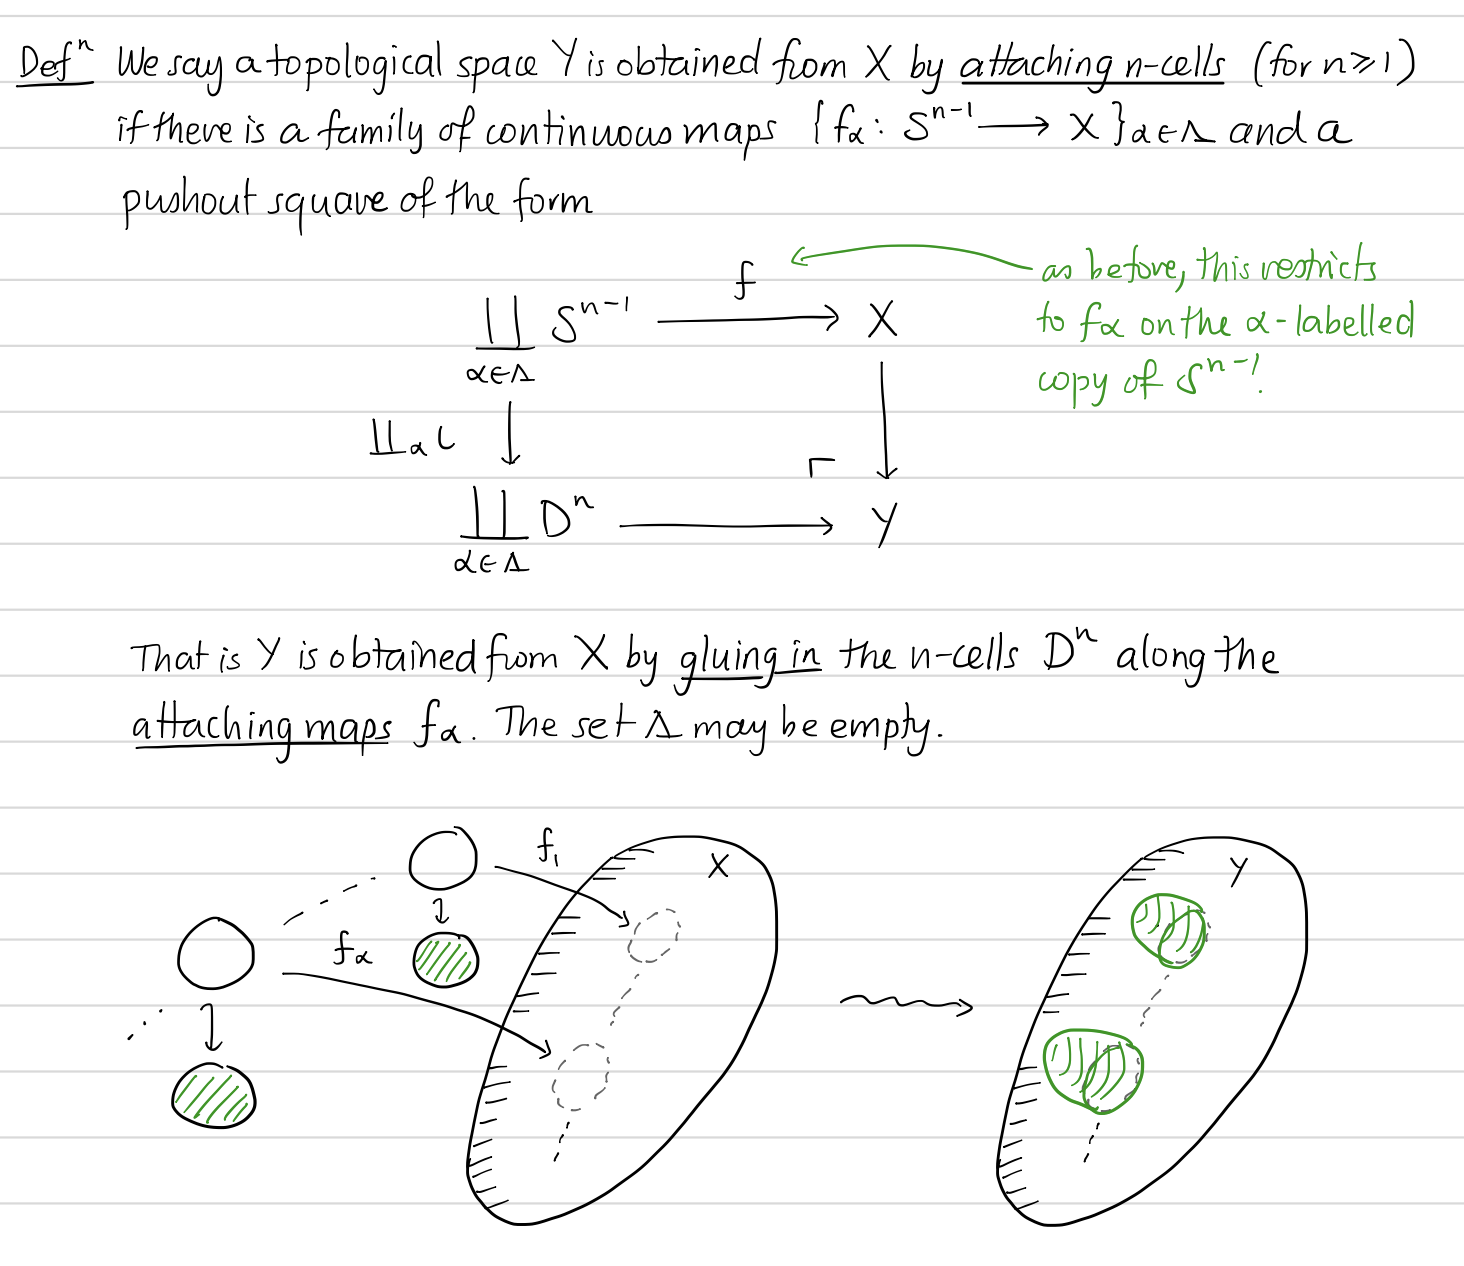 Defⁿ We say a topological space Y is obtained from X by attaching n-cells (for n⩾1)
if there is a family of continuous maps {fα : Sⁿ⁻¹ ⟶ X}α∈Λ and a
pushout square of the form
f
as before, this restricts
∐ Sⁿ⁻¹ ⟶ X
to fα on the α-labelled
α∈Λ
copy of Sⁿ⁻¹.
∐α ι ↓ ↓
∐ Dⁿ ⟶ Y
α∈Λ
That is Y is obtained from X by gluing in the n-cells Dⁿ along the
attaching maps fα. The set Λ may be empty.
f₁
X
Y
fα